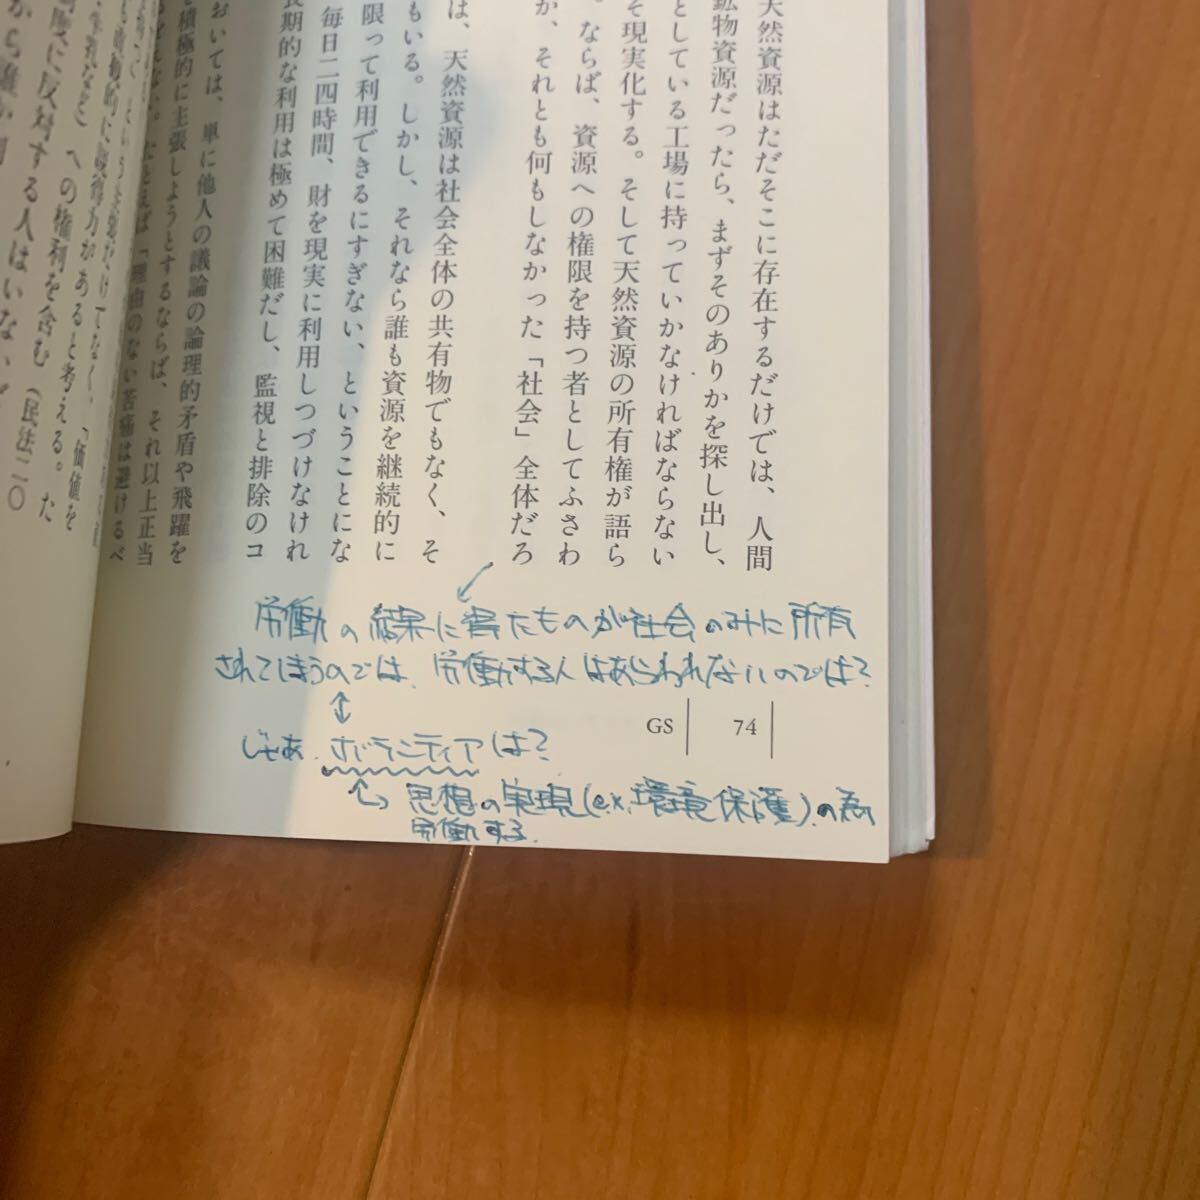 天然資源はただそこに存在するだけでは、人間
鉱物資源だったら、まずそのありかを探し出し、
としている工場に持っていかなければならない
そ現実化する。そして天然資源の所有権が語ら
。ならば、資源への権限を持つ者としてふさわ
か、それとも何もしなかった「社会」全体だろ
は、天然資源は社会全体の共有物でもなく、そ
もいる。しかし、それなら誰も資源を継続的に
限って利用できるにすぎない、ということにな
毎日二四時間、財を現実に利用しつづけなけれ
長期的な利用は極めて困難だし、監視と排除のコ
おいては、単に他人の議論の論理的矛盾や飛躍を
積極的に主張しようとするならば、それ以上正当
たとえば「理由のない苦痛は避けるべ
があると考える。た
への権利を含む(民法二〇
に反対する人はいない
労働の結果に得たものが社会のみに所有
されてしまうのでは、労働する人はあらわれないのでは?
じゃあ、ボランティアは?
思想の実現(ex.環境保護)の為
労働する.
GS 74